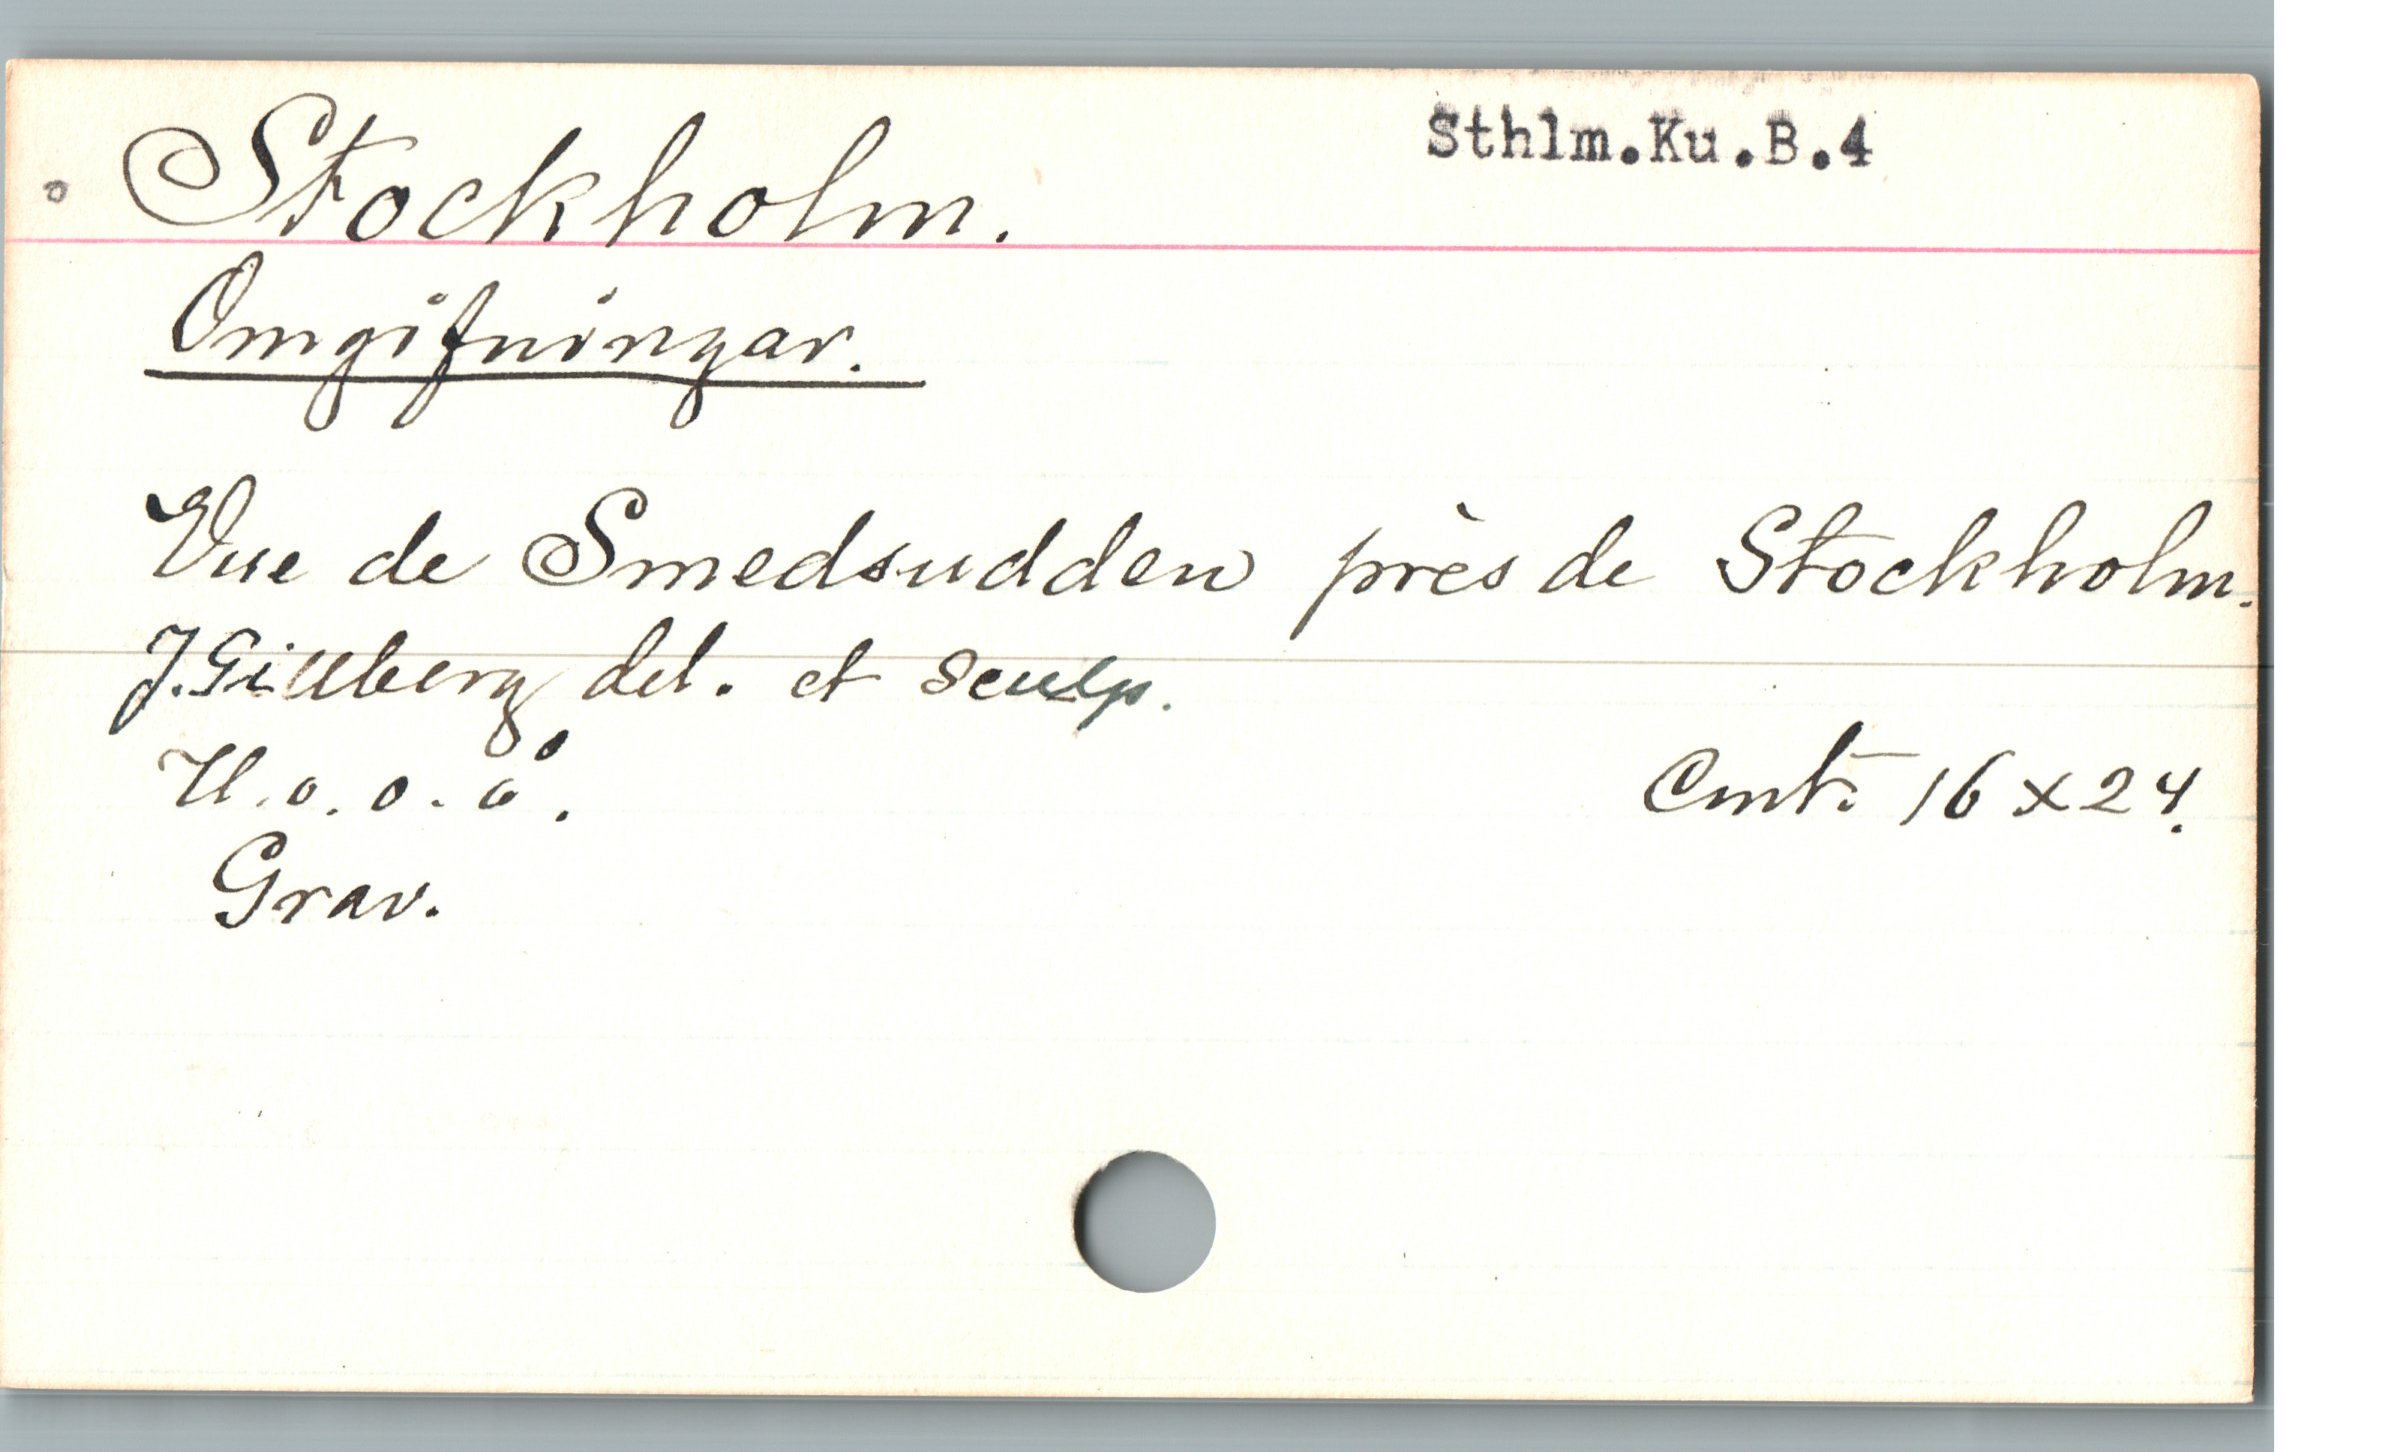 Stockholm. Sthlm.Ku.B.4
Omgifningar.
Vue de Smedsudden près de Stockholm.
J. Gillberg del. et sculp.
U. o. o. å. Cmt: 16 x 24.
Grav.